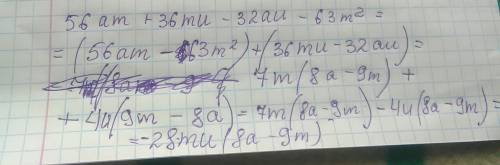 56am + 36mu - 32au - 63m² =
= (56am - 63m²) + (36mu - 32au) =
7m(8a - 9m) +
+ 4u(9m - 8a) = 7m(8a - 9m) - 4u(8a - 9m) =
= -28mu(8a - 9m)